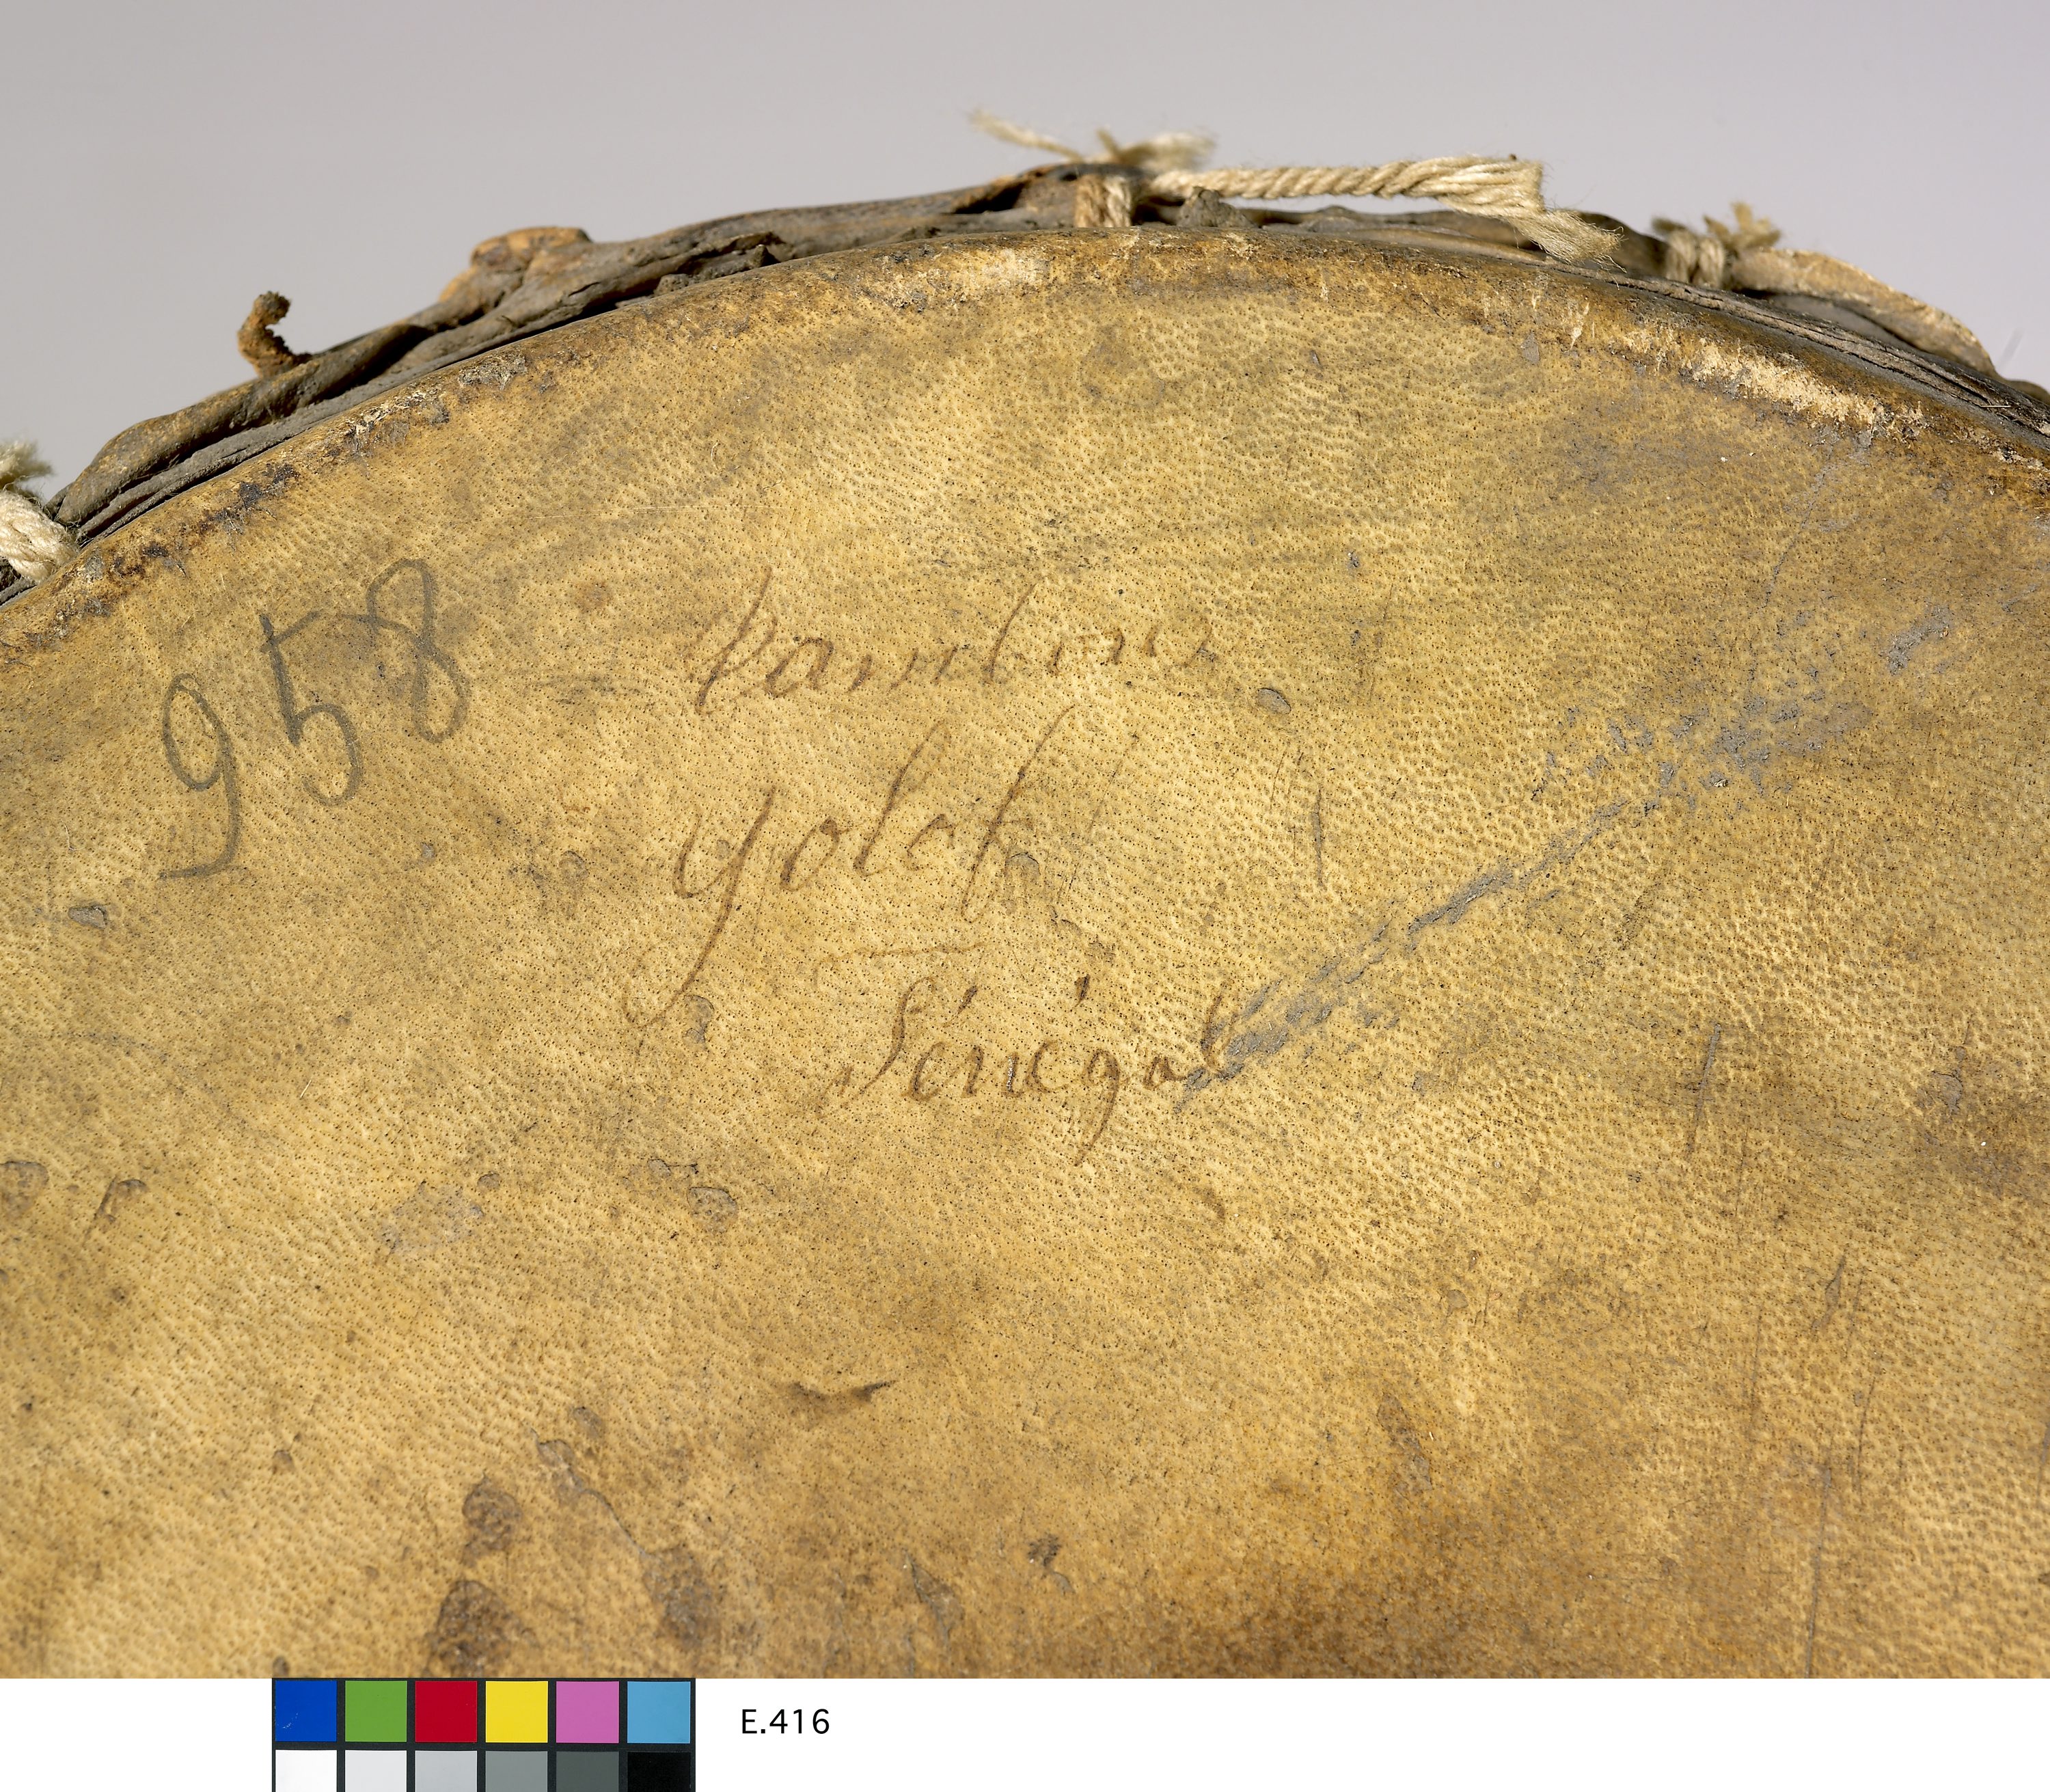 958
Yolof
Sénégal
E.416